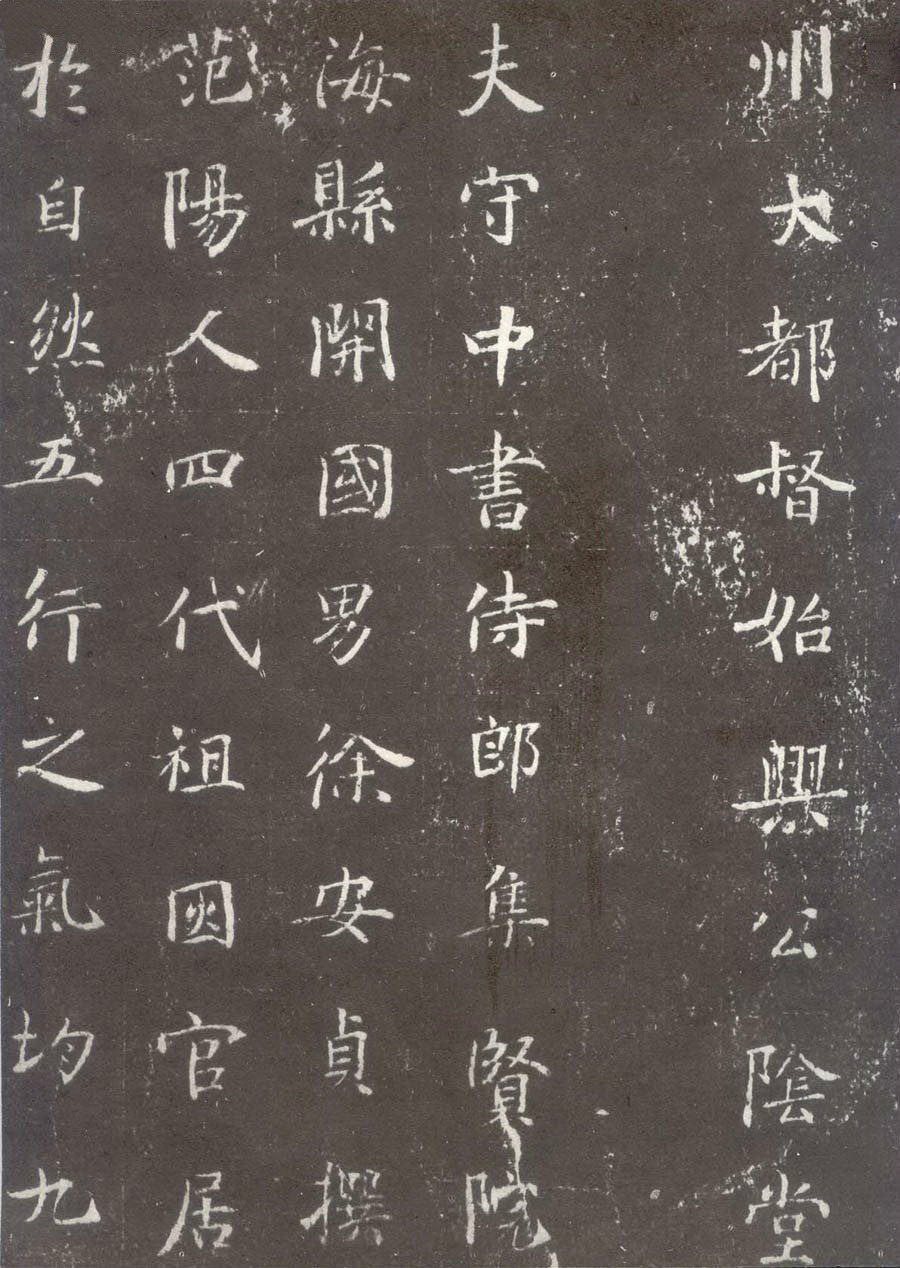 州大都督始興公陰堂
夫守中書侍郎集賢院
海縣開國男徐安貞撰
范陽人四代祖因官居
於自然五行之氣均九